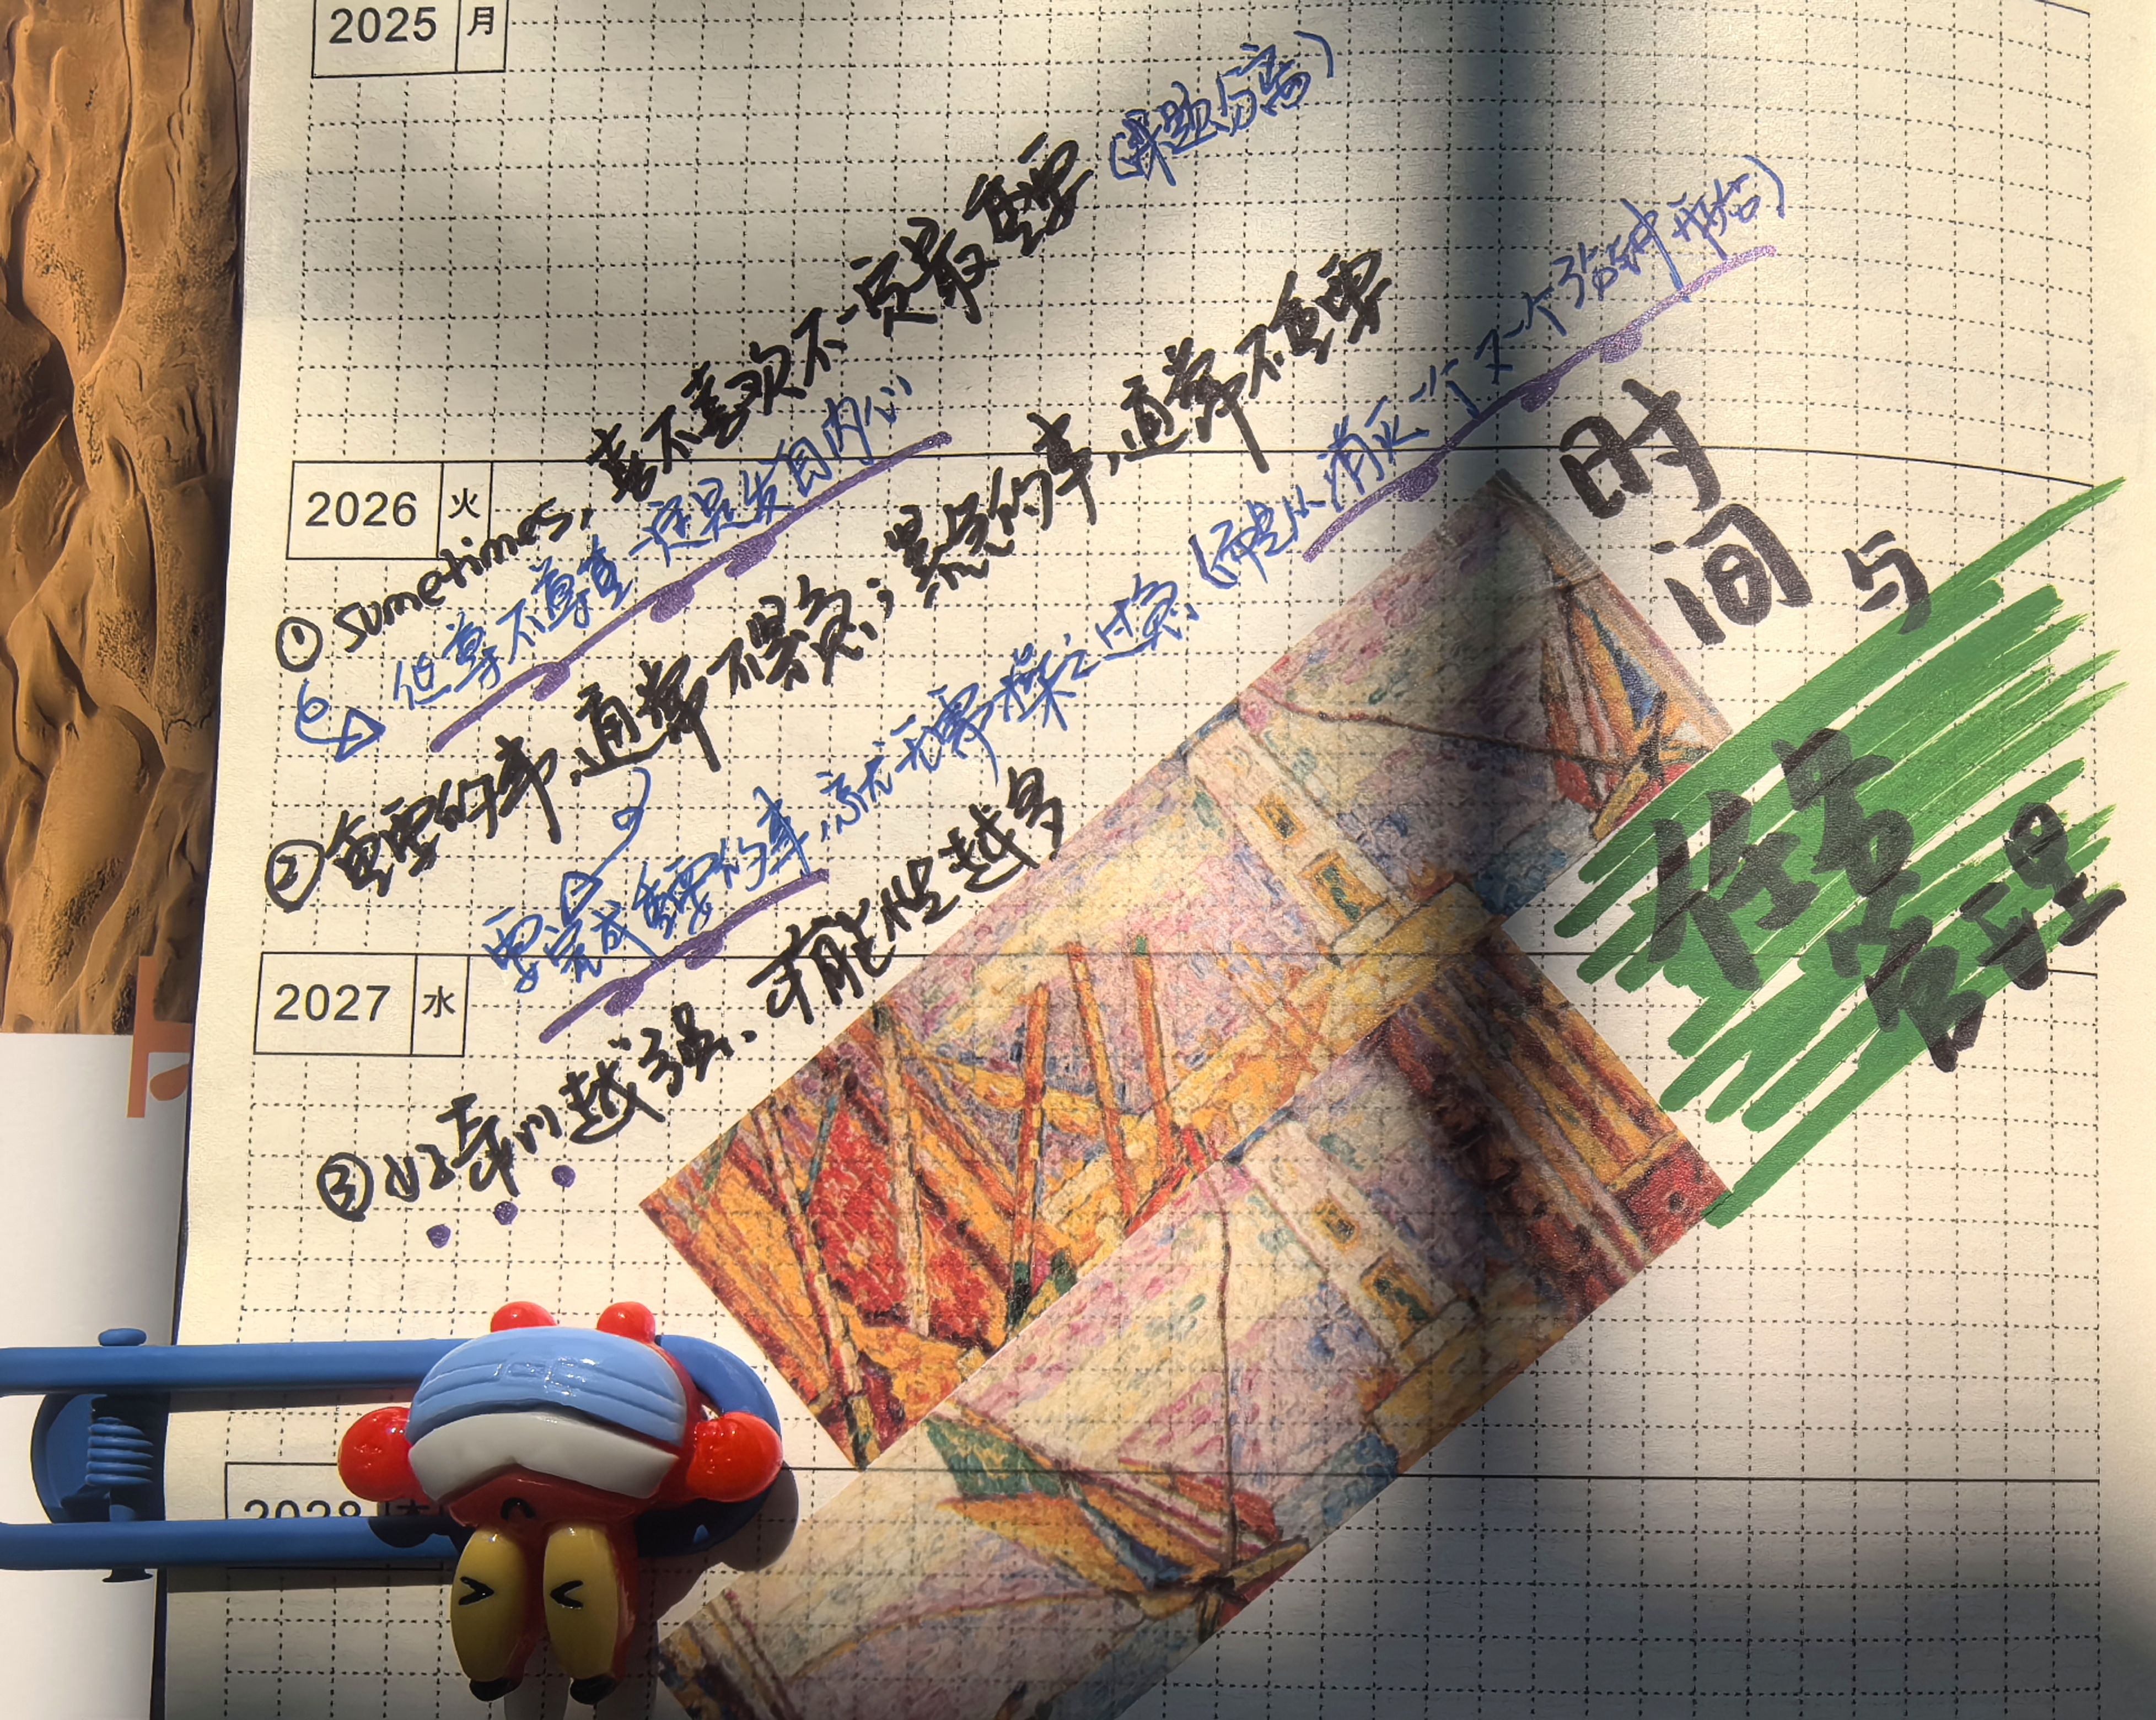 2025 月
2026 火
2027 水
2028 木
①sometimes,喜不喜欢不一定最重要(课题与客)
但尊不尊重一定是发自内心
②重要的事,通常不紧急;紧急的事,通常不重要
要完成重要的事,就无需操之过急、(而是从消灭一个又一个番钟开始)
③好奇心越强、可能性越多
时间与
任务
管理